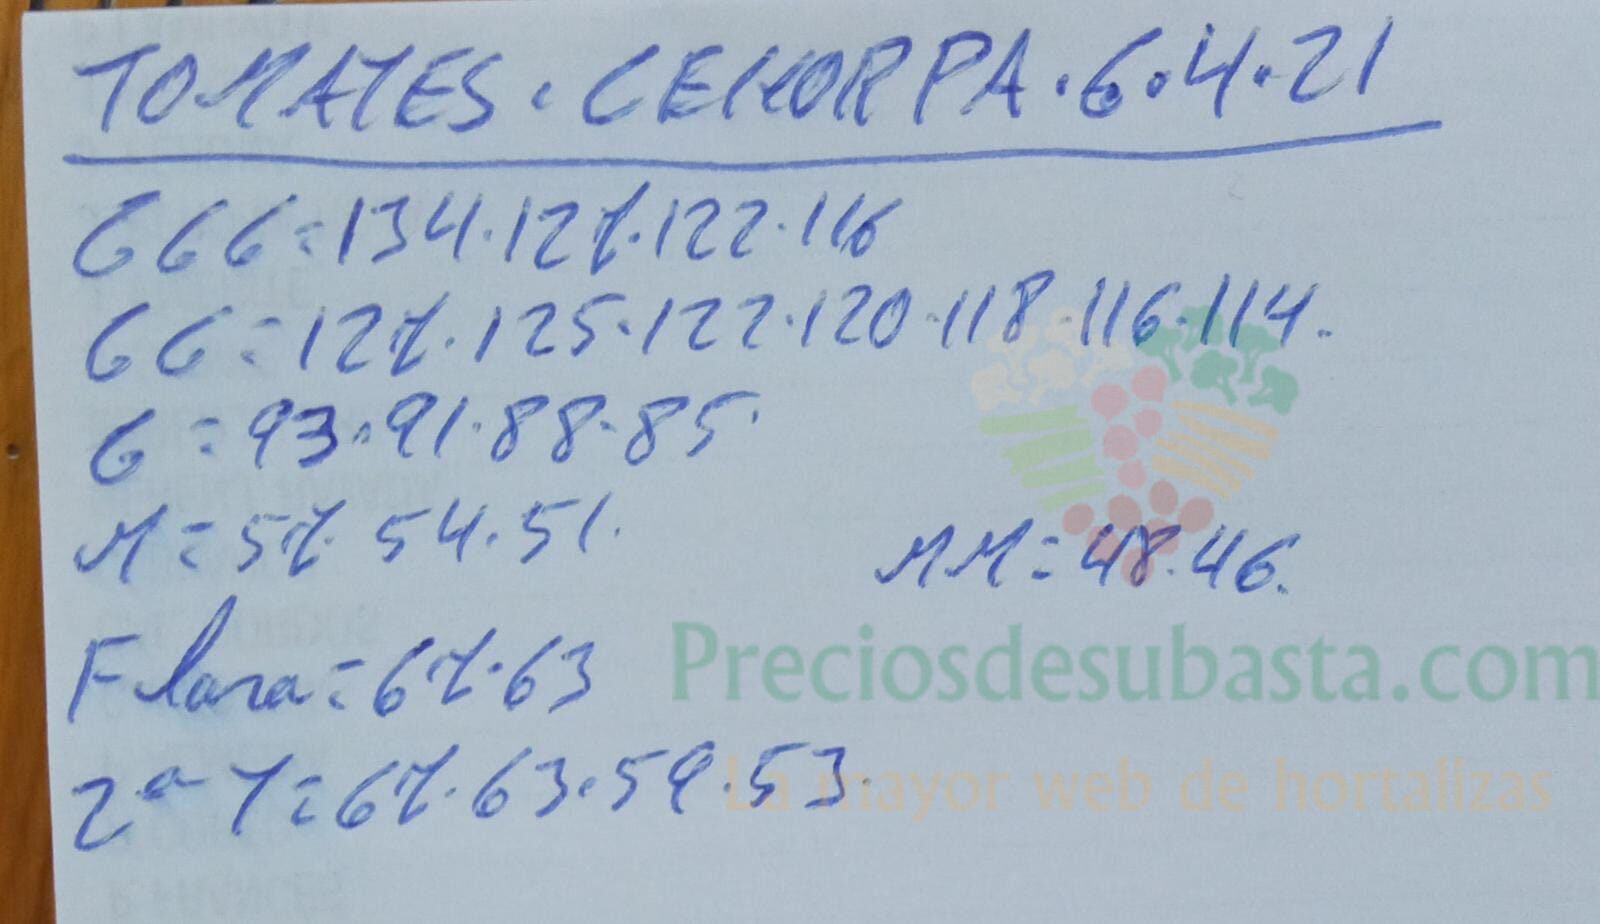 TOMATES · CEHORPA · 6·4·21
GGG = 134·127·122·116
GG = 127·125·122·120·118·116·114.
G = 93·91·88·85·
M = 57 54·51.
MM = 48·46.
F lara = 67·63
Preciosdesubasta.com
2ª Y = 67·63·59·53.
La mayor web de hortalizas